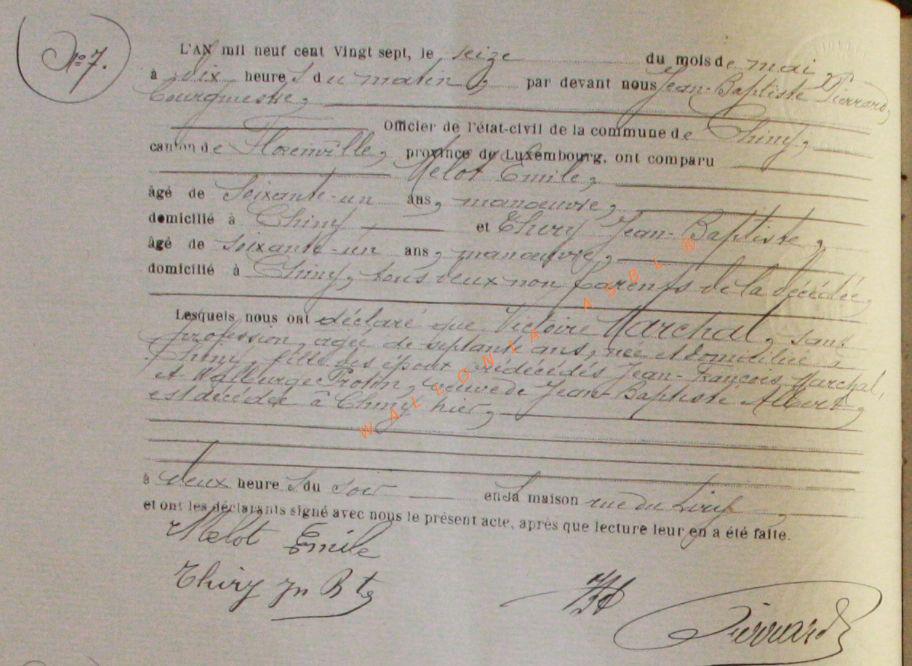 N° 7.
L'AN mil neuf cent Vingt sept, le seize du mois de mai,
à dix heures du matin, par devant nous Jean-Baptiste Pierrard,
Bourgmestre,
Officier de l'état-civil de la commune de Chiny,
canton de Florenville, province de Luxembourg, ont comparu
Melot Emile,
âgé de soixante-un ans, manœuvre,
domicilié à Chiny et Thiry Jean-Baptiste,
âgé de soixante-un ans, manœuvre,
domicilié à Chiny, tous deux non parents de la décédée,
Lesquels nous ont déclaré que Victoire Marchal, sans
profession, agée de septante ans, née et domiciliée à
Chiny, fille des époux prédécédés Jean-François Marchal,
et Walburge, veuve de Jean-Baptiste Albert,
est décédée à Chiny hier,
à deux heures du soir en sa maison rue du
et ont les déclarants signé avec nous le présent acte, après que lecture leur en a été faite.
Melot Emile
Thiry Jn Bte
Pierrard
WALLONIA ASBL ®